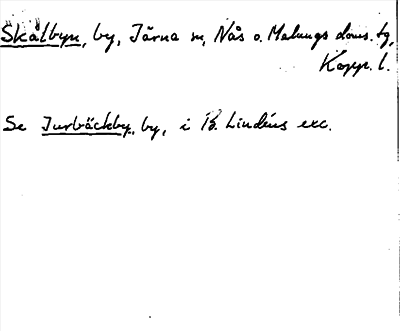 Skålbyn, by, Järna sn, Nås o. Malungs doms. tg,
Kopp. l.
Se Jurbäckby, by, i B. Lindéns exc.